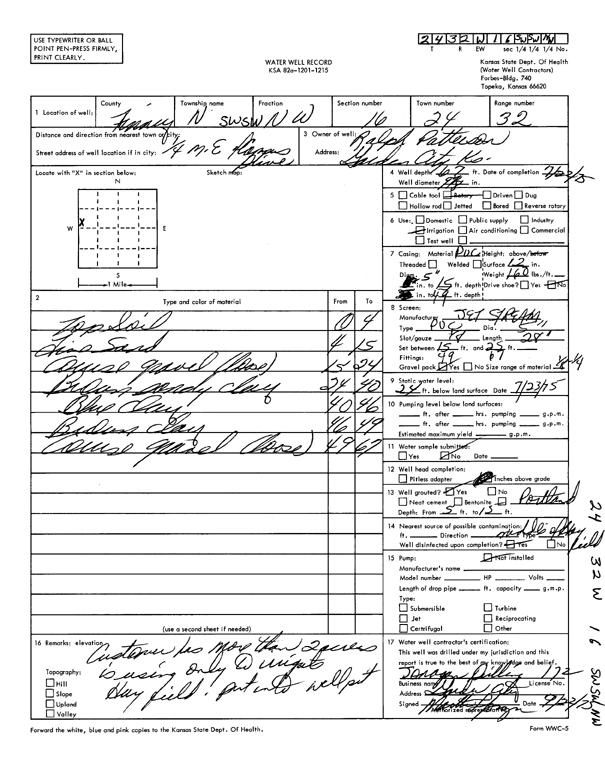 USE TYPEWRITER OR BALL
POINT PEN-PRESS FIRMLY,
PRINT CLEARLY.
2 4 3 2 W 1 6 SW SW NW
T R EW sec 1/4 1/4 1/4 No.
WATER WELL RECORD
KSA 82a-1201-1215
Kansas State Dept. Of Health
(Water Well Contractors)
Forbes-Bldg. 740
Topeka, Kansas 66620
1 Location of well: County Township name Fraction Section number Town number Range number
Finney N SWSWNW 16 24 32
Distance and direction from nearest town or city:
Street address of well location if in city: 4 M.E. Kansas Drive
3 Owner of well: Ralph Patterson
Address: Garden City Ks.
Locate with "X" in section below: Sketch map:
N
X
W E
S
1 Mile
4 Well depth 67 ft. Date of completion 7/23/75
Well diameter in.
5 Cable tool Rotary Driven Dug
Hollow rod Jetted Bored Reverse rotary
6 Use: Domestic Public supply Industry
Irrigation Air conditioning Commercial
Test well
7 Casing: Material PVC Height: above/below
Threaded Welded Surface 12 in.
Diam. 5" Weight 160 lbs./ft.
in. to 15 ft. depth Drive shoe? Yes No
in. to 49 ft. depth
2 Type and color of material From To
Top Soil 0 4
Fine Sand 4 15
Course gravel (loose) 15 24
Brown sandy clay 24 40
Blue Clay 40 46
Brown Clay 46 49
Course gravel (loose) 49 67
8 Screen:
Manufacturer JET STREAM
Type PVC Dia. 5"
Slot/gauze Length 28'
Set between 15 ft. and 25 ft.
Fittings: 49 67
Gravel pack Yes No Size range of material
9 Static water level:
24 ft. below land surface Date 7/23/75
10 Pumping level below land surfaces:
ft. after hrs. pumping g.p.m.
ft. after hrs. pumping g.p.m.
Estimated maximum yield g.p.m.
11 Water sample submitted:
Yes No Date
12 Well head completion:
Pitless adapter Inches above grade
13 Well grouted? Yes No
Neat cement Bentonite Portland
Depth: From 5 ft. to 15 ft.
14 Nearest source of possible contamination:
ft. Direction Type middle of Hay field
Well disinfected upon completion? Yes No
15 Pump: Not installed
Manufacturer's name
Model number HP Volts
Length of drop pipe ft. capacity g.m.p.
Type:
Submersible Turbine
Jet Reciprocating
Certrifugal Other
(use a second sheet if needed)
16 Remarks: elevation,
Customer has more than 2 acres
is using only to irrigate
Hay field. put into well pit
Topography:
Hill
Slope
Upland
Valley
17 Water well contractor's certification:
This well was drilled under my jurisdiction and this
report is true to the best of my knowledge and belief.
Business name License No. 122
Address Garden City
Signed Date
Authorized representative
Forward the white, blue and pink copies to the Kansas State Dept. Of Health.
Form WWC-5
24 32W 16 SWSWNW